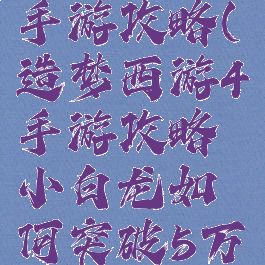 手游攻略(
造梦西游4
手游攻略
小白龙如
何突破5万